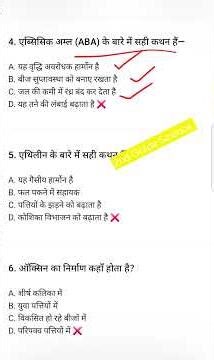 4. एब्सिसिक अम्ल (ABA) के बारे में सही कथन हैं—
A. यह वृद्धि अवरोधक हार्मोन है
B. बीज सुप्तावस्था को बनाए रखता है
C. जल की कमी में रंध्र बंद कर देता है
D. यह तने की लंबाई बढ़ाता है
5. एथिलीन के बारे में सही कथन
A. यह गैसीय हार्मोन है
B. फल पकने में सहायक
C. पत्तियों के झड़ने को बढ़ाता है
D. कोशिका विभाजन को बढ़ाता है
6. ऑक्सिन का निर्माण कहाँ होता है?
A. शीर्ष कलिका में
B. युवा पत्तियों में
C. विकसित हो रहे बीजों में
D. परिपक्व पत्तियों में